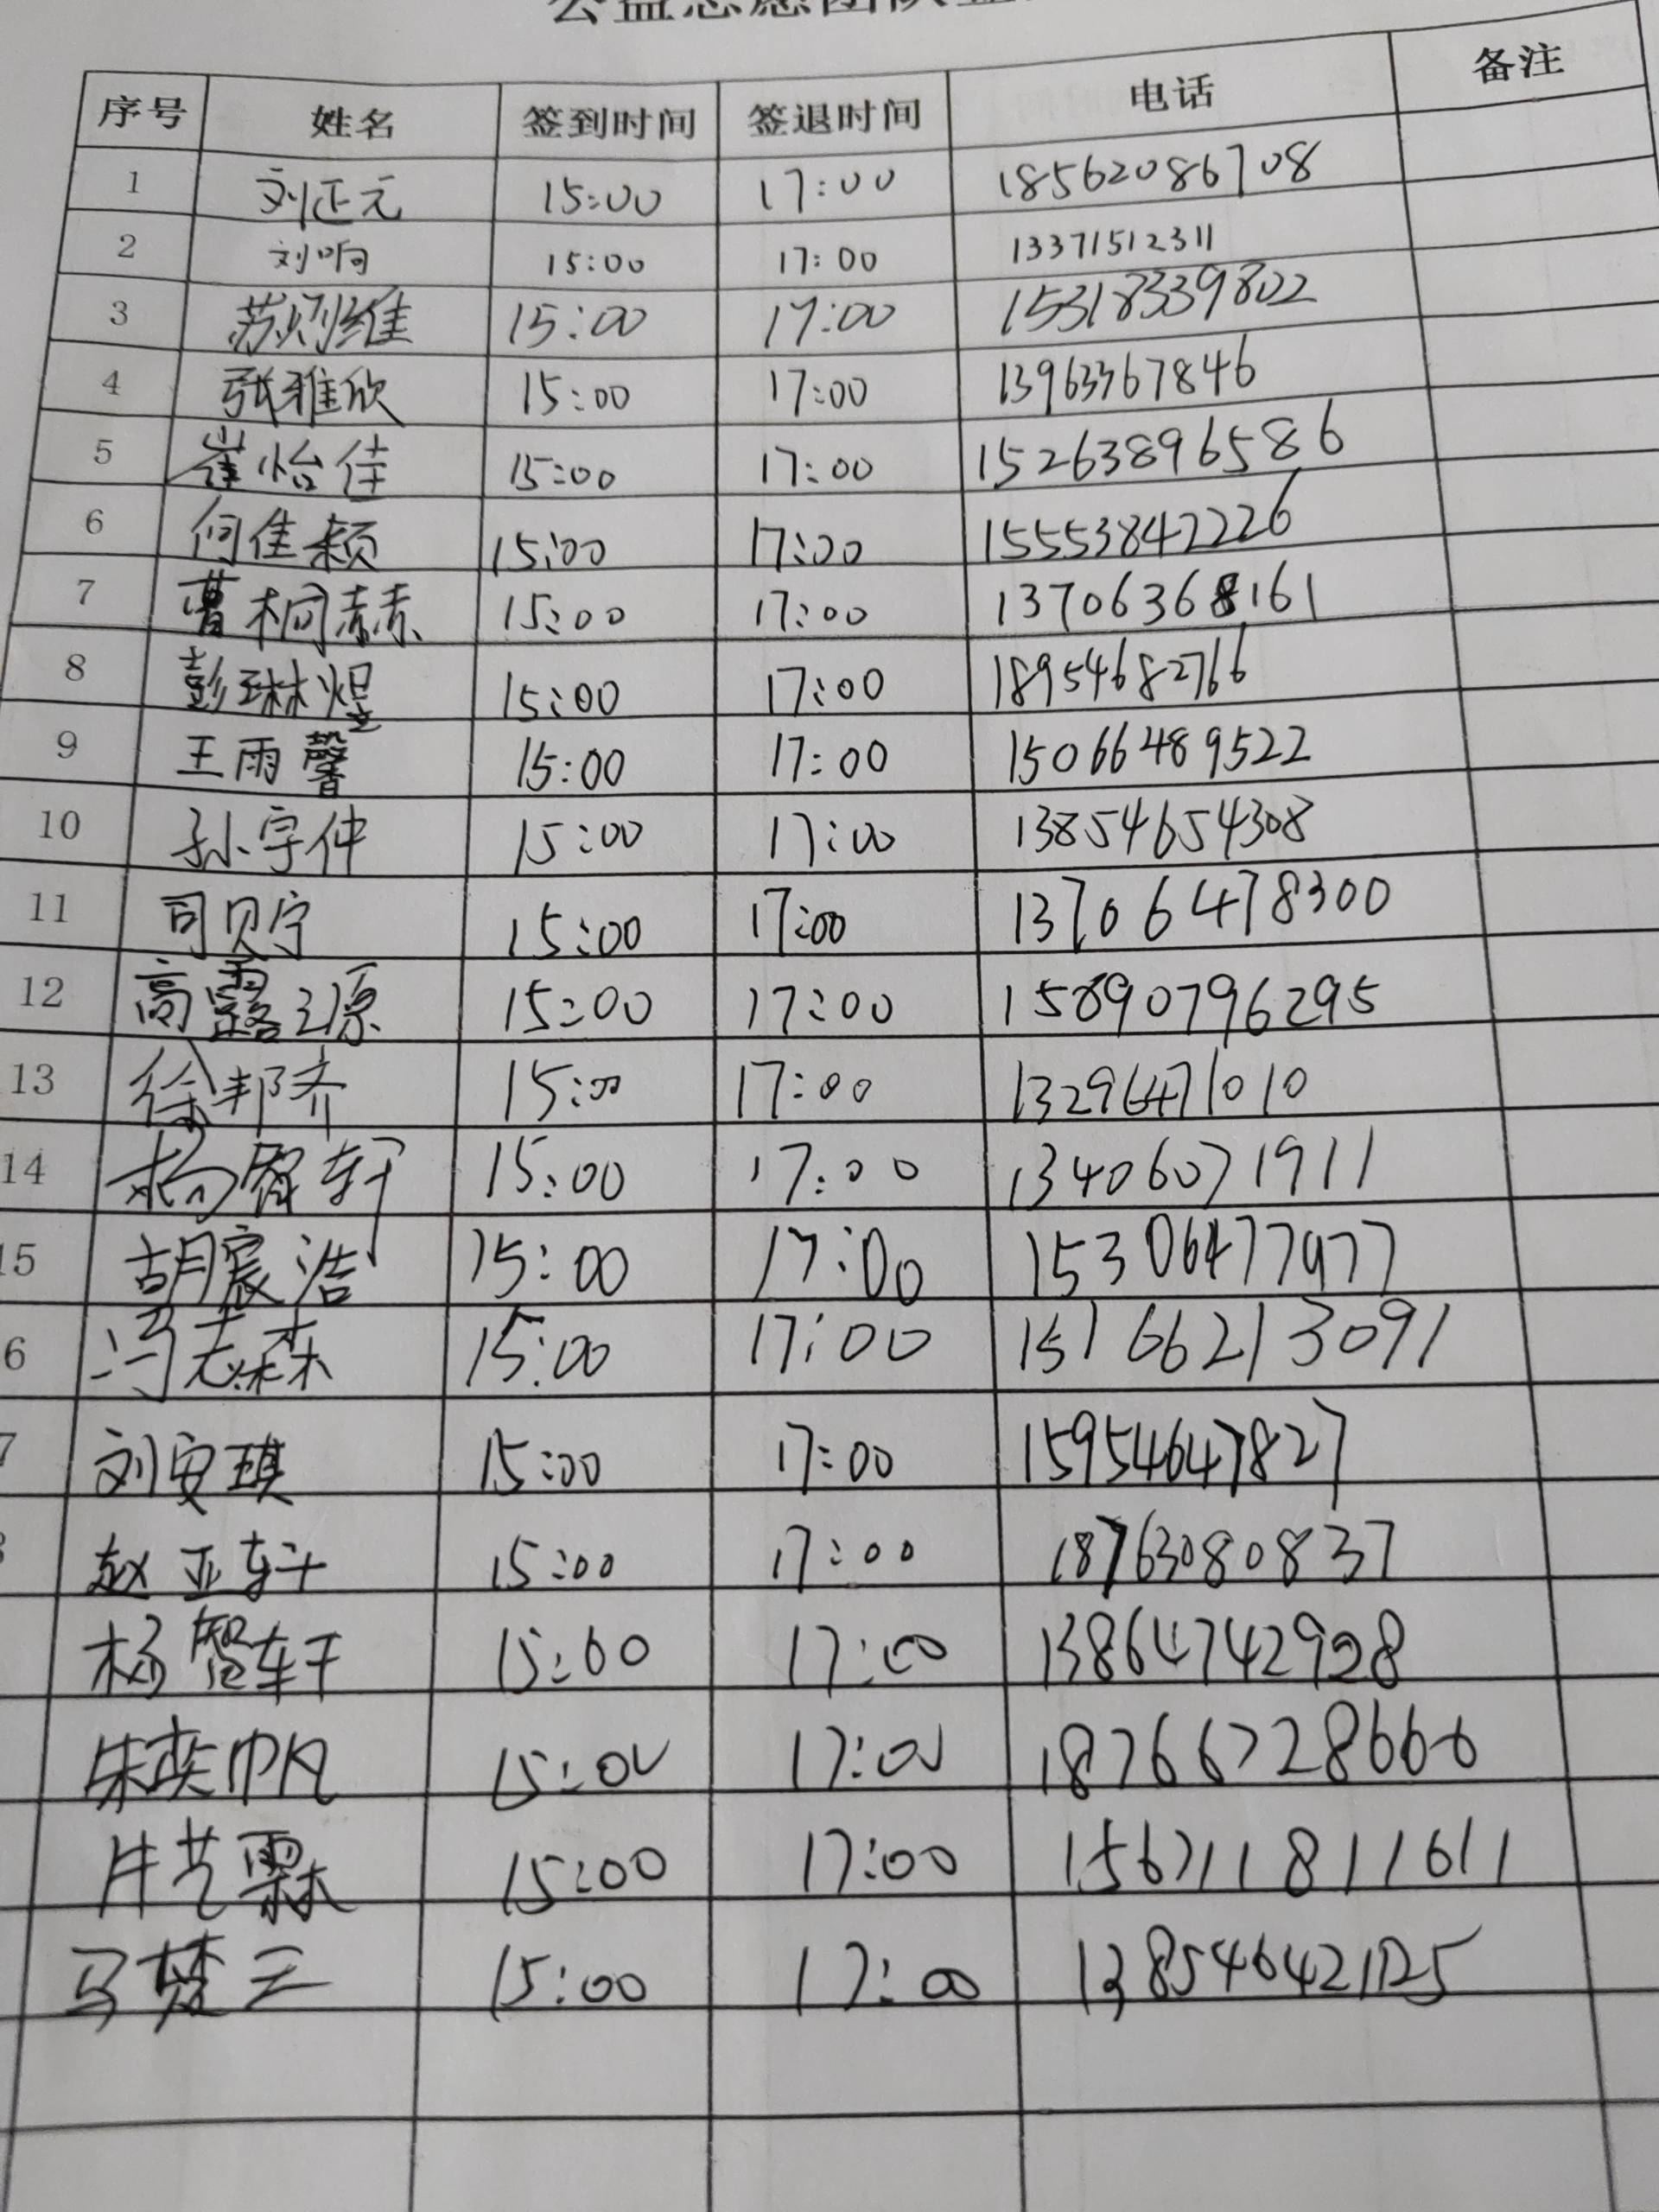 公益志愿团队
序号 姓名 签到时间 签退时间 电话 备注
1 刘正元 15:00 17:00 18562086708
2 刘响 15:00 17:00 13371512311
3 苏 维 15:00 17:00 15318339802
4 张雅欣 15:00 17:00 13963367846
5 崔怡佳 15:00 17:00 15263896586
6 何佳颖 15:00 17:00 15553847226
7 曹桐赫 15:00 17:00 13706368161
8 彭琳煜 15:00 17:00 18954682766
9 王雨馨 15:00 17:00 15066489522
10 孙宇仲 15:00 17:00 13854654308
11 司贝宁 15:00 17:00 13706478300
12 高露源 15:00 17:00 15890796295
13 徐邦齐 15:00 17:00 13296471010
14 杨 轩 15:00 17:00 13406071911
15 胡宸浩 15:00 17:00 15306477977
6 冯志森 15:00 17:00 15166213091
7 刘安琪 15:00 17:00 15954647827
赵亚轩 15:00 17:00 18763080837
杨智轩 15:00 17:00 13864742928
朱奕帆 15:00 17:00 18766728666
艺霖 15:00 17:00 156711811611
马楚云 15:00 17:00